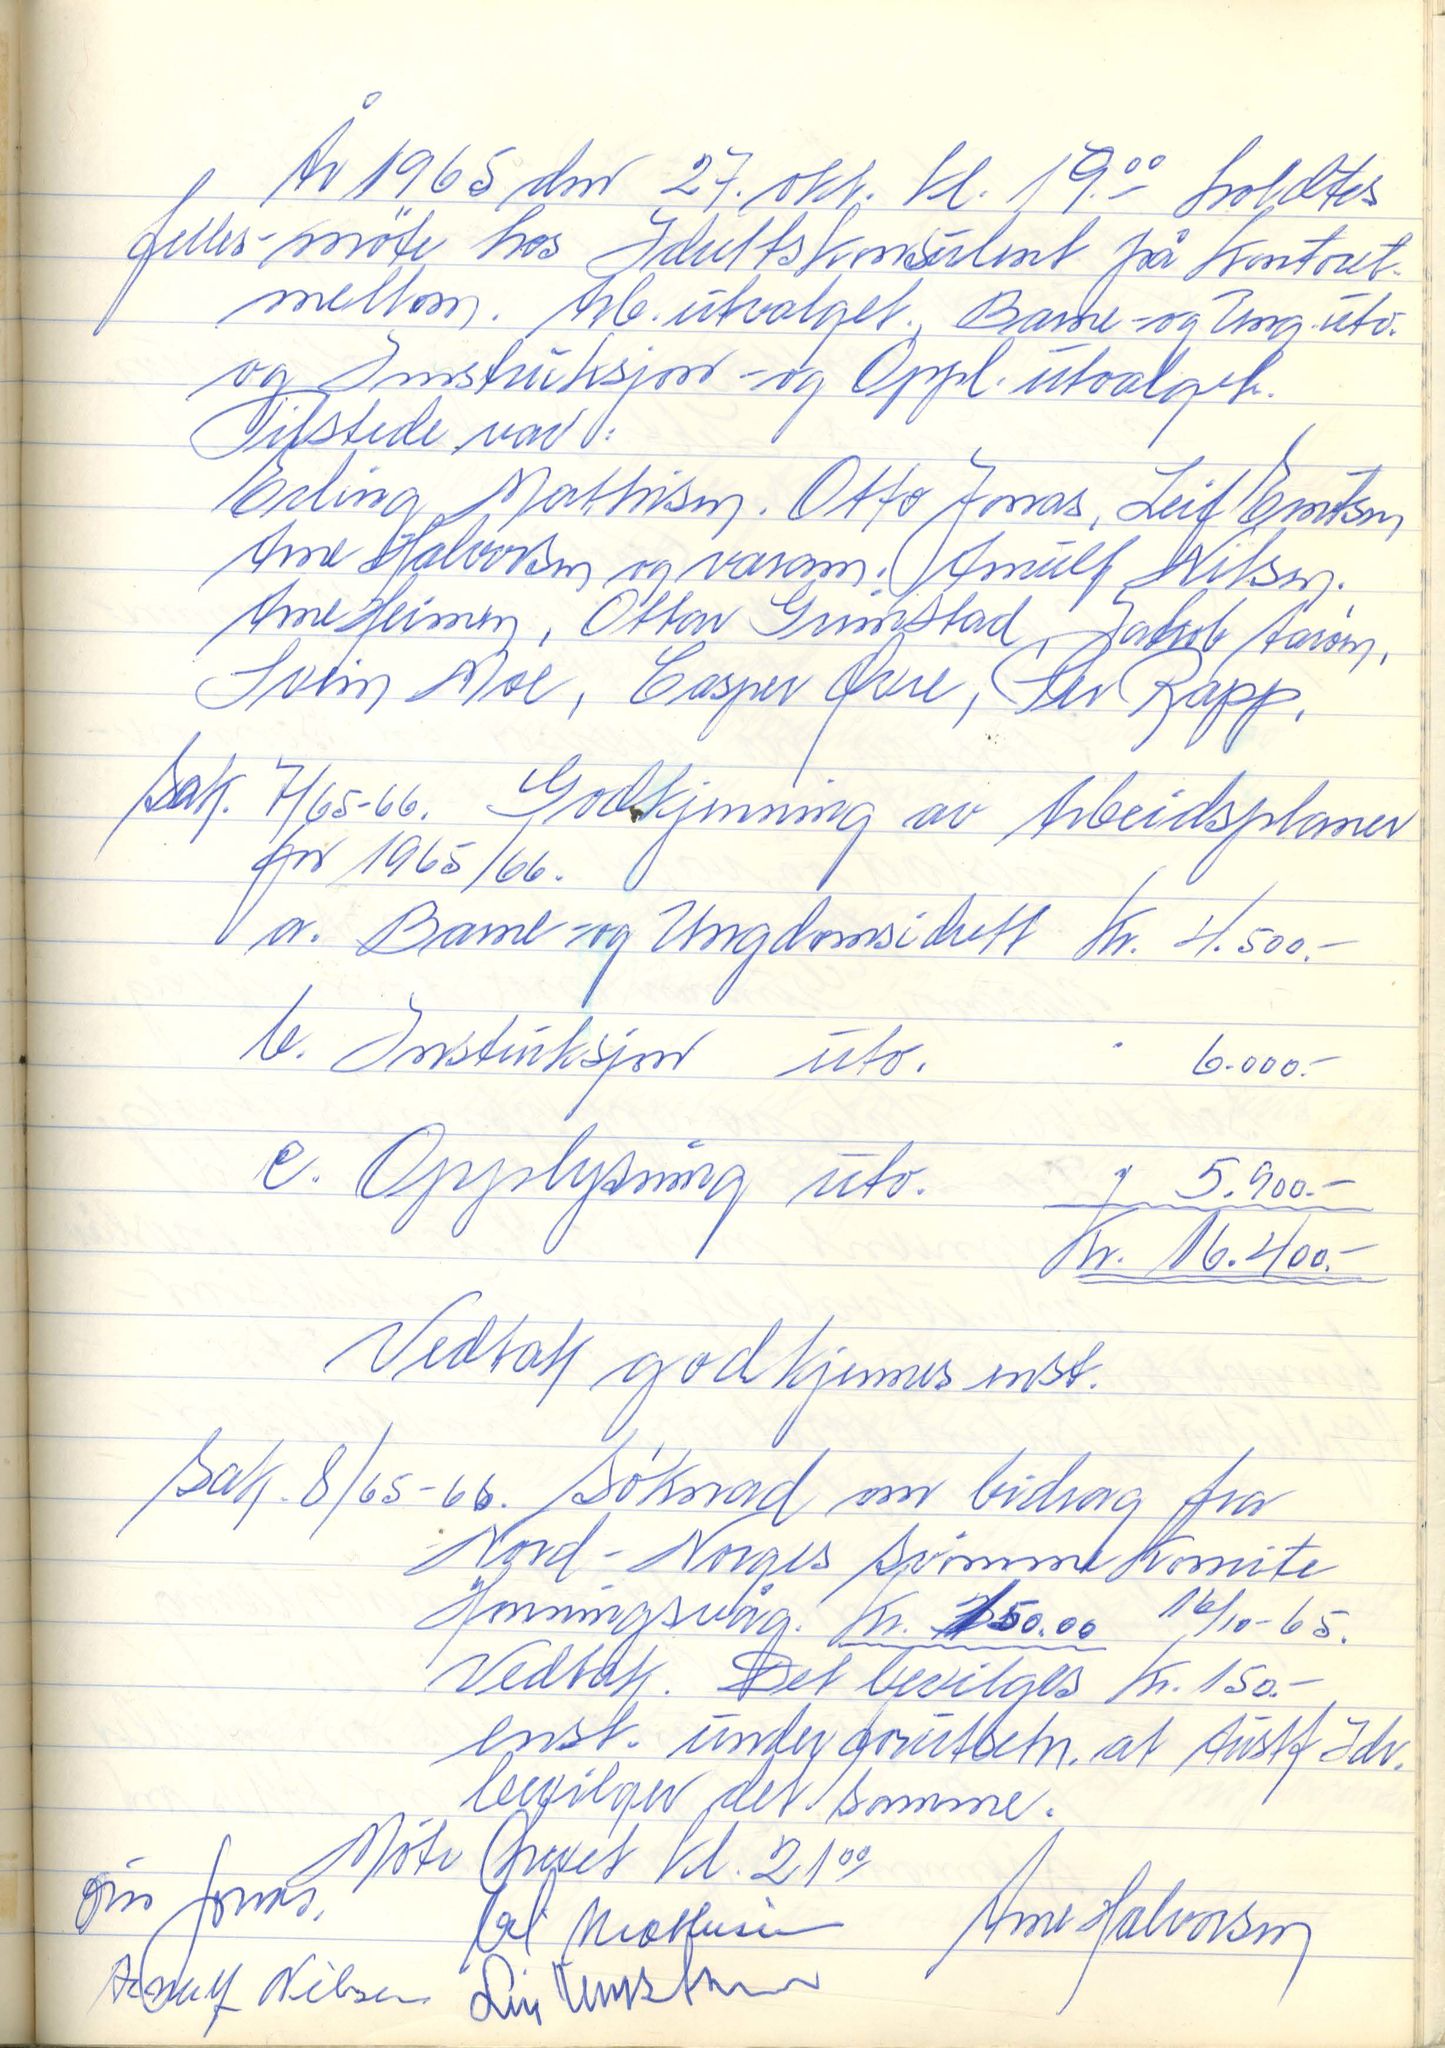 År 1965 den 27. okt. kl. 19.00 holdtes
felles-möte hos Idrettskonsulent på kontoret.
mellom. Arb. utvalget., Barne-og Ung. utv.
og Instruksjon-og Oppl. utvalget.
Tilstede var:
Erling Mathisen. Otto Jonas, Leif Erntsen
Arne Halvorsen og varam. Arnulf Nilsen.
Arne Heimen, Ottar Grimstad, Jakob Aarøen,
Svein Moe, Casper Øvre, Per Rapp.
Sak. 7/65-66. Godkjenning av Arbeidsplaner
for 1965/66.
a. Barne-og Ungdomsidrett Kr. 4.500.-
b. Instruksjon utv. " 6.000.-
c. Opplysning utv. " 5.900.-
Kr. 16.400.-
Vedtak godkjennes enst.
Sak. 8/65-66. Söknad om bidrag fra
Nord-Norges Svömme Komite
Honningsvåg. Kr. 150.00 16/10-65.
Vedtak. Det bevilges Kr. 150.-
enst. under forutsetn. at Austf Idr.
bevilger det samme.
Möte hevet kl. 21 00
Otto Jonas.
Erl Mathisen
Arne Halvorsen
Arnulf Nilsen